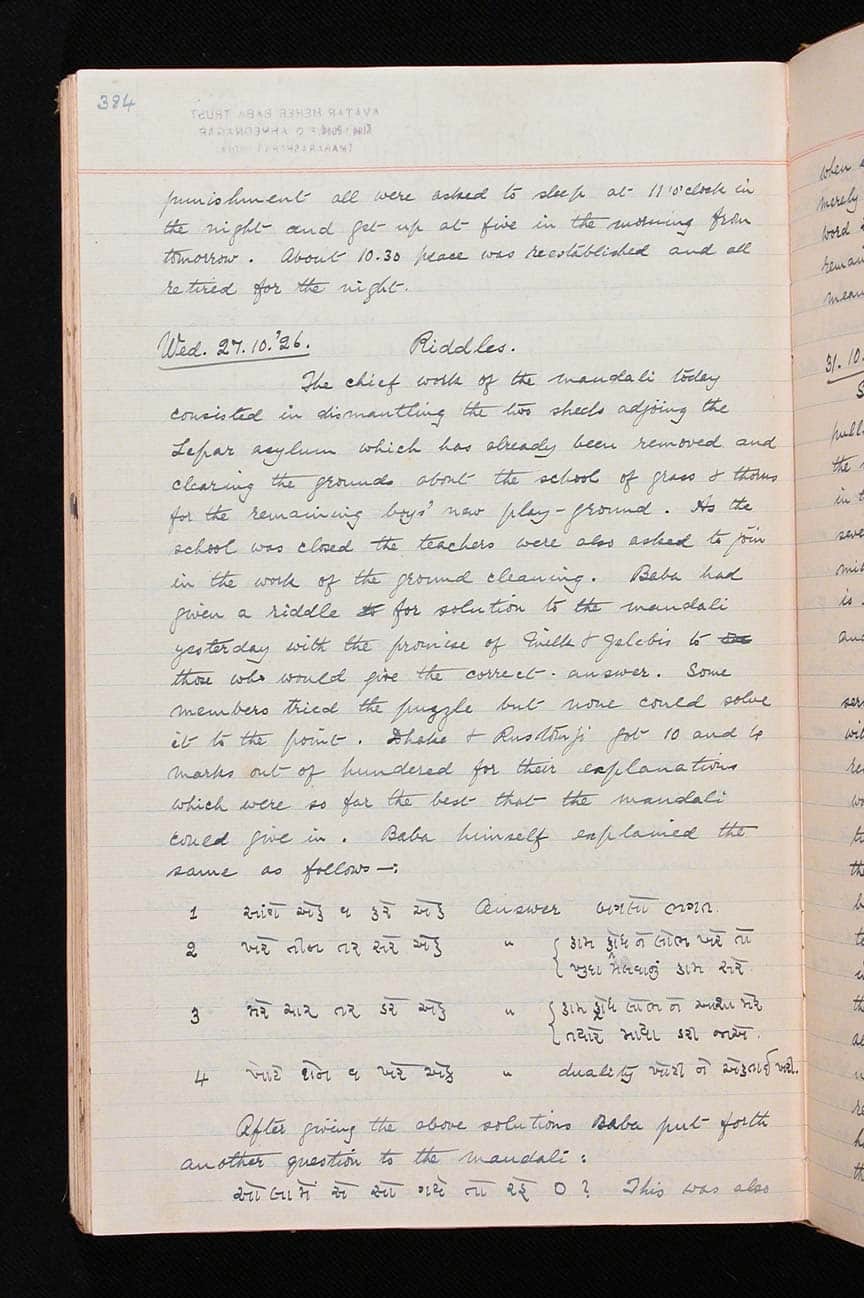 384
AVATAR MEHER BABA TRUST
punishment all were asked to sleep at 11 o'clock in
the night and get up at five in the morning from
tomorrow. About 10.30 peace was reestablished and all
retired for the night.
Wed. 27.10.'26. Riddles.
The chief work of the mandali today
consisted in dismantling the two sheds adjoing the
Lepar asylum which has already been removed and
clearing the grounds about the school of grass & thorns
for the remaining boys' new play-ground. As the
school was closed the teachers were also asked to join
in the work of the ground cleaning. Baba had
given a riddle to for solution to the mandali
yesterday with the promise of milk & Jelebis to
those who would give the correct answer. Some
members tried the puzzle but none could solve
it to the point. Dhake & Rustomji got 10 and
marks out of hundered for their explanations
which were so far the best that the mandali
could give in. Baba himself explained the
same as follows:—
1 એક Answer
2 ખરે તીન તર એક " કામ ક્રોધ ને લોભ ખરે તો
કામ સરે
3 મરે ચાર તર ડરે એક " કામ ક્રોધ લોભ ને આશા મરે
માયા ડરી જાએ.
4 ખરે એક " duality
After giving the above solutions Baba put forth
another question to the mandali:
તો રહે 0? This was also
when
merely
word
31. 10.
the
is